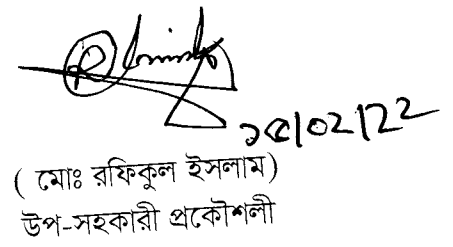 ১৫/০২/২২
( মোঃ রফিকুল ইসলাম)
উপ-সহকারী প্রকৌশলী